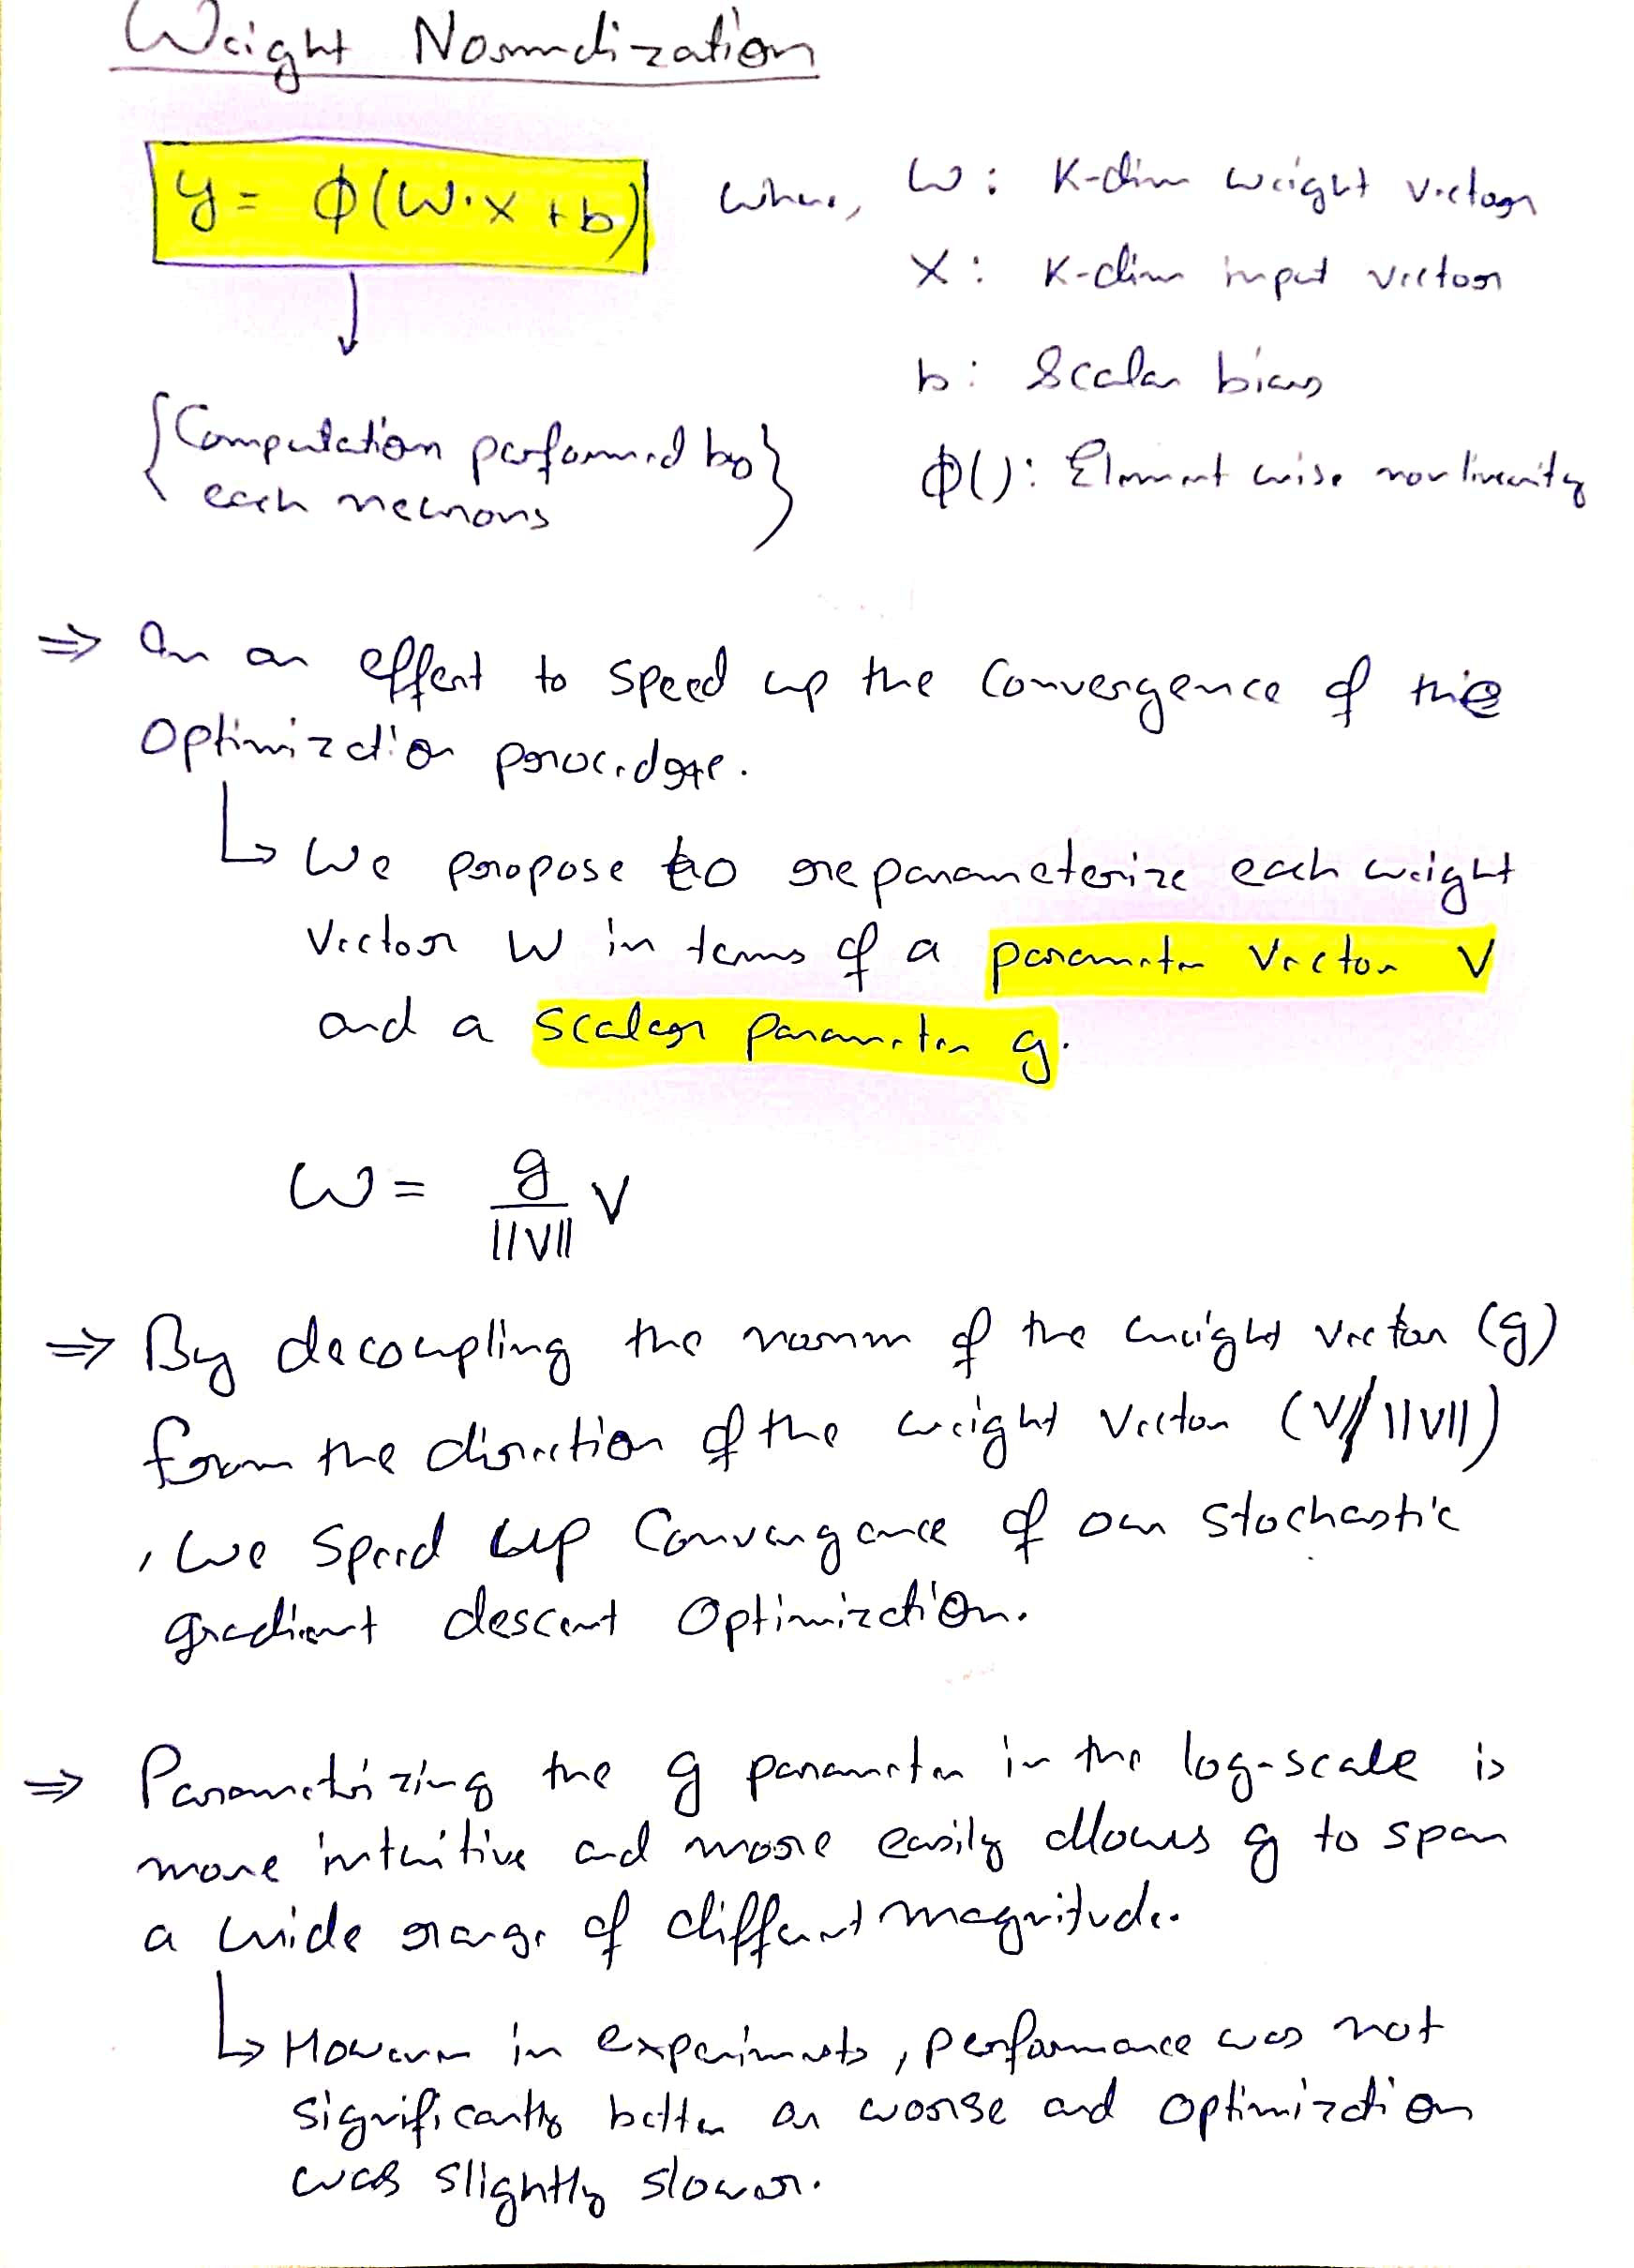 Weight Normalization
y = ϕ(W·x + b) where, W: K-dim weight vector
X: K-dim input vector
b: Scalar bias
{Computation performed by
each neurons}
ϕ(): Element wise nonlinearity
⇒ In an effort to speed up the convergence of this
Optimization procedure.
↳ We propose to reparameterize each weight
Vector W in terms of a parameter Vector V
and a scalar parameter g.
W = g/||V|| V
⇒ By decoupling the norm of the weight vector (g)
from the direction of the weight Vector (V/||V||)
, we speed up Convergence of our stochastic
gradient descent Optimization.
⇒ Parametrizing the g parameter in the log-scale is
more intuitive and more easily allows g to span
a wide range of different magnitude.
↳ However in experiments, performance was not
significantly better or worse and optimization
was slightly slower.